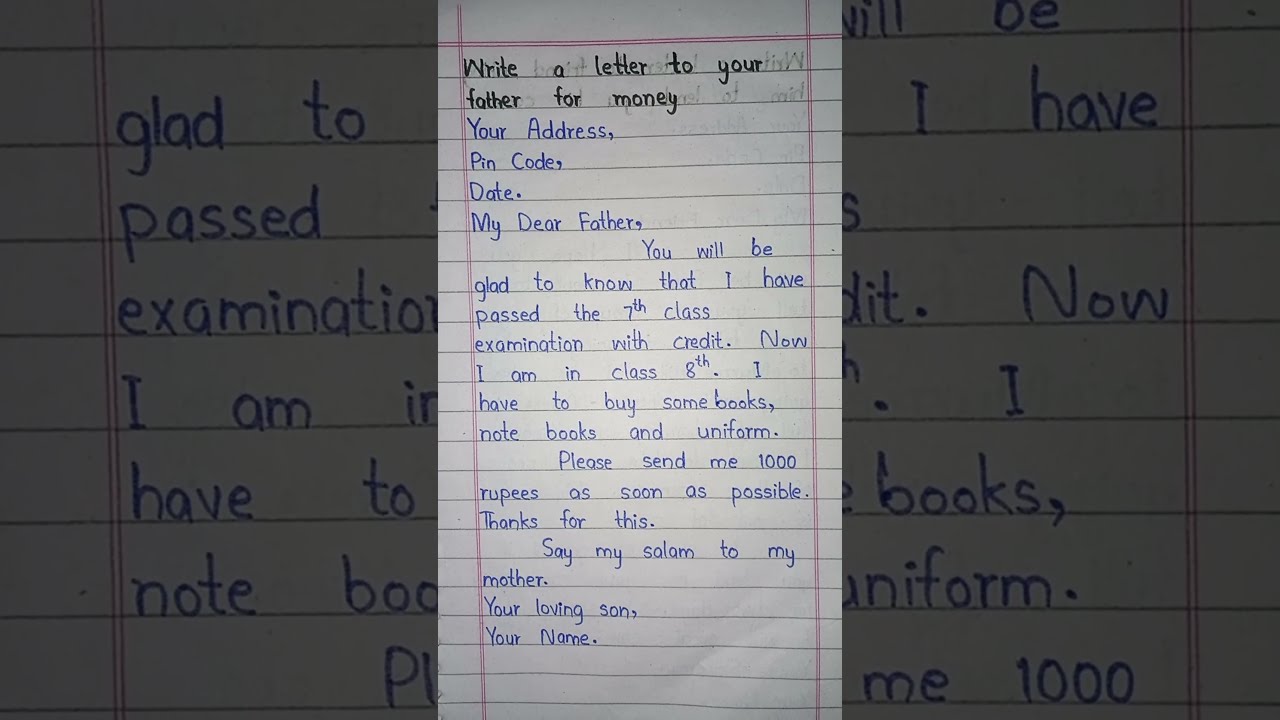 Write a letter to your
father for money
Your Address,
Pin Code,
Date.
My Dear Father,
You will be
glad to know that I have
passed the 7th class
examination with credit. Now
I am in class 8th. I
have to buy some books,
note books and uniform.
Please send me 1000
rupees as soon as possible.
Thanks for this.
Say my salam to my
mother.
Your loving son,
Your Name.